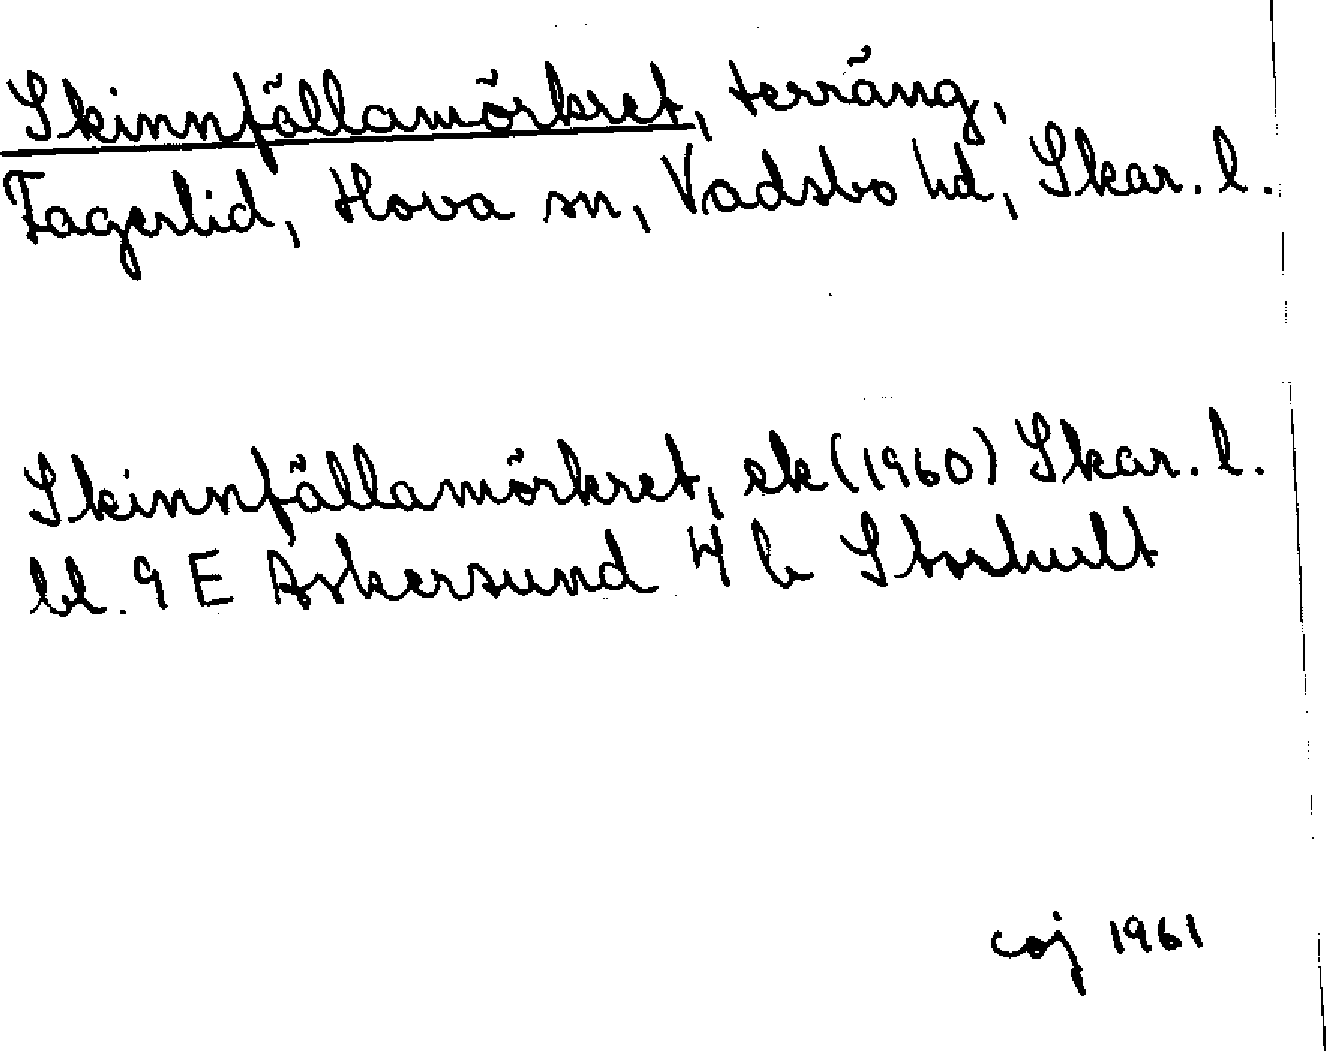 Skinnfällamörkret, terräng,
Fagerlid, Hova sn, Vadsbo hd, Skar. l.
Skinnfällamörkret, ek (1960) Skar. l.
bl. 9 E Askersund 4 b Storhult
coj 1961